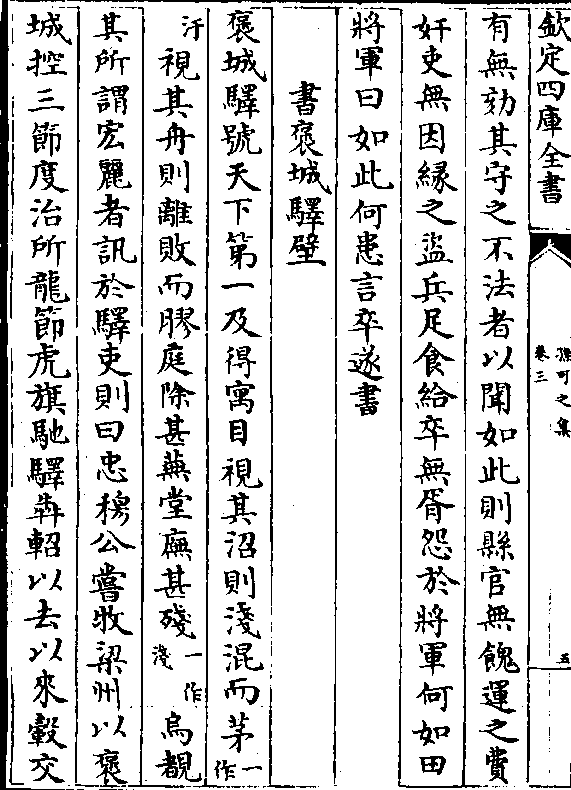 欽定四庫全書
孫可之集
卷三
五
有無劾其守之不法者以聞如此則縣官無餽運之費
奸吏無因緣之盜兵足食給卒無胥怨於將軍何如田
將軍曰如此何患言卒遂書
書褒城驛壁
褒城驛號天下第一及得寓目視其沼則淺混而茅一作
汙視其舟則離敗而膠庭除甚蕪堂廡甚殘一作淺烏覩
其所謂宏麗者訊於驛吏則曰忠穆公嘗收梁州以褒
城控三節度治所龍節虎旗馳驛犇軺以去以來轂交